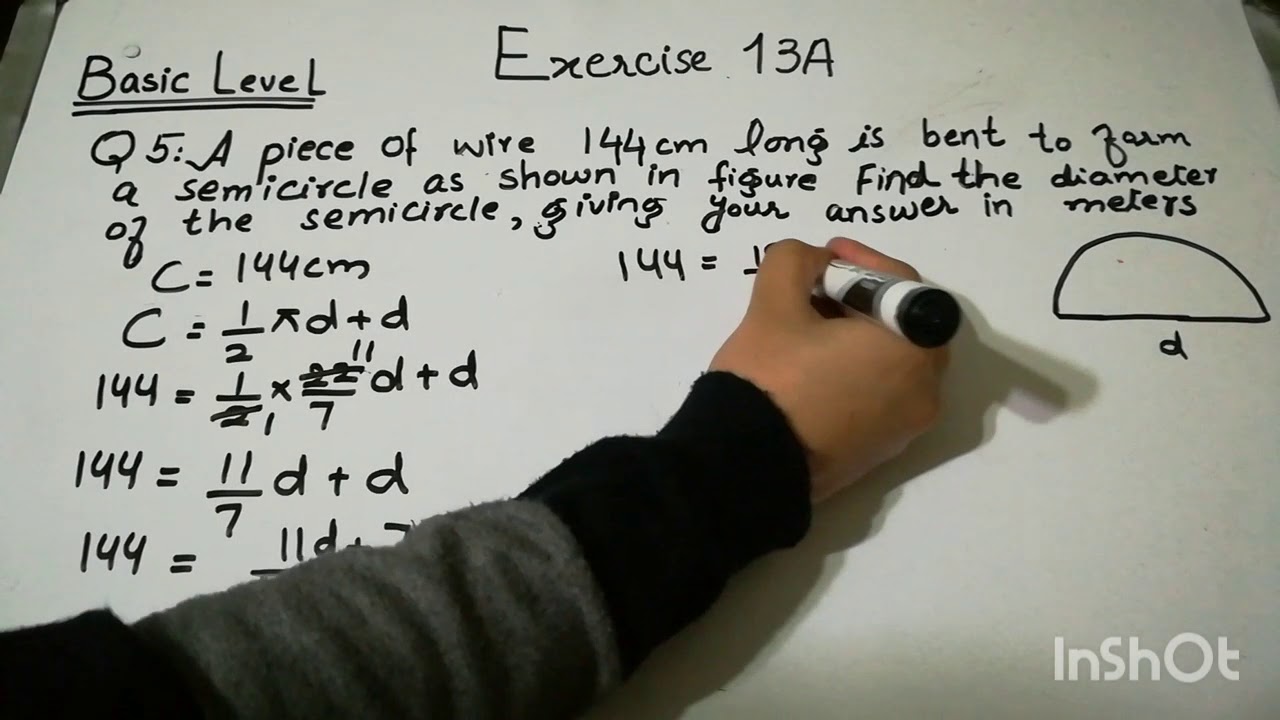 Basic Level
Exercise 13A
Q5: A piece of wire 144cm long is bent to form
a semicircle as shown in figure Find the diameter
of the semicircle, giving your answer in meters
C = 144cm
C = 1/2 πd + d
144 = 1/2 1 × 22/7 11 d + d
144 = 11/7 d + d
144 = 11d +
144 =
d
InShOt